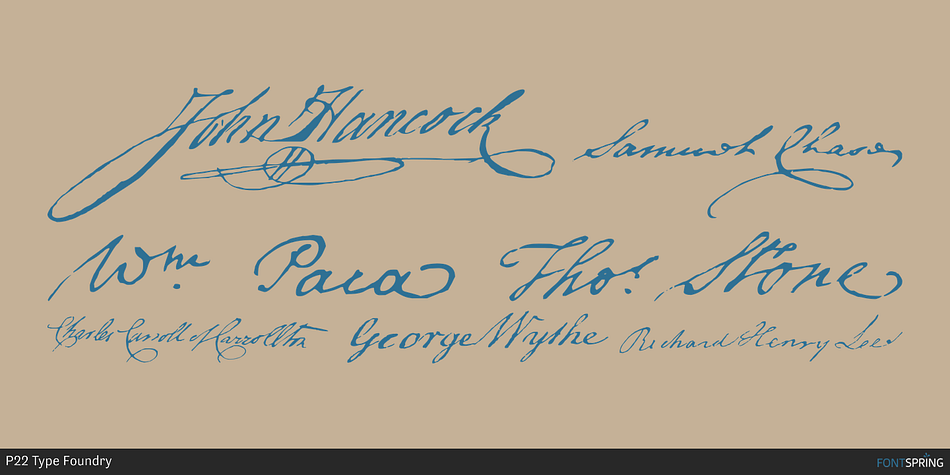 John Hancock Samuel Chase
Wm. Paca Thos. Stone
Charles Carroll of Carrollton George Wythe Richard Henry Lee
P22 Type Foundry FONTSPRING